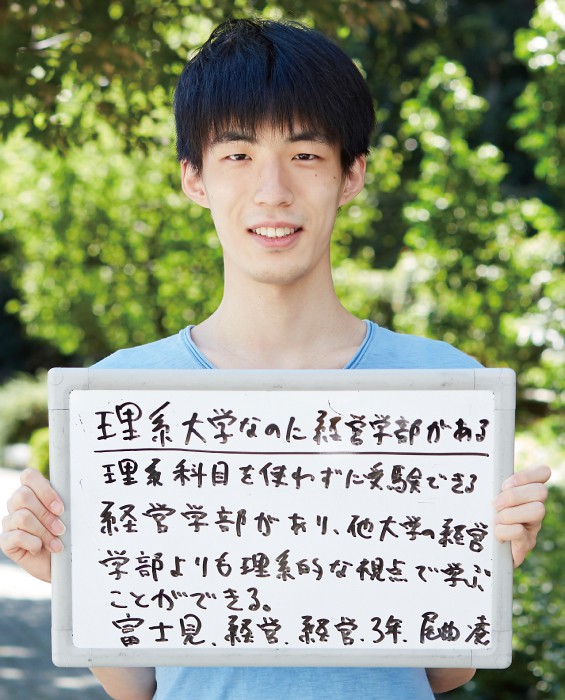 理系大学なのに経営学部がある
理系科目を使わずに受験できる
経営学部があり、他大学の経営
学部よりも理系的な視点で学ぶ
ことができる。
富士見、経営、経営、3年、尾曲 庵